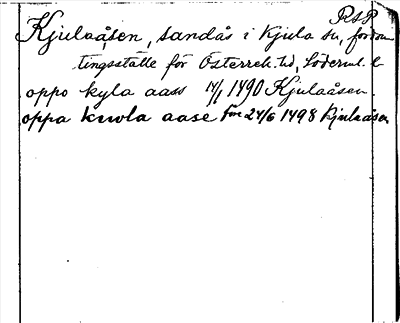 PSP
Kjulaåsen, sandås i Kjula sn, fordom
tingsställe för Österrek. hd, Söderml. l
oppo kyla aass 14/1 1490 Kjulaåsen.
oppa kwla aase 24/6 1498 Kjulaåsen